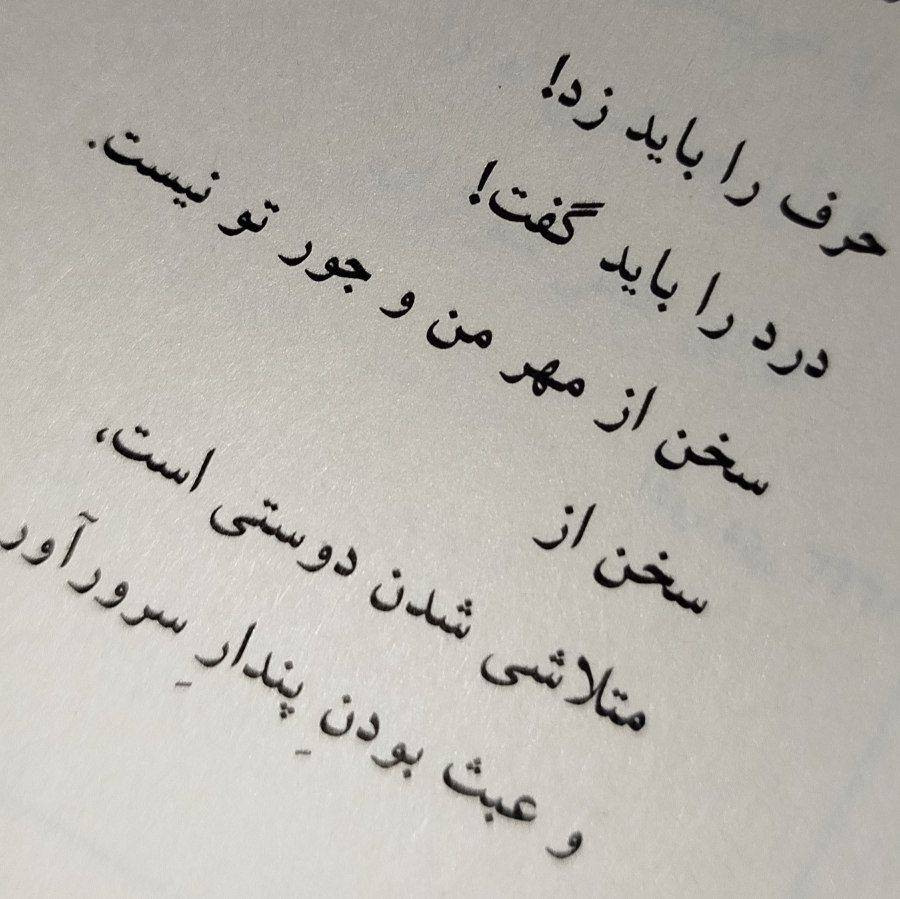 حرف را باید زد!
درد را باید گفت!
سخن از مهر من و جور تو نیست.
سخن از
متلاشی شدن دوستی است،
و عبث بودنِ پندارِ سرورآور